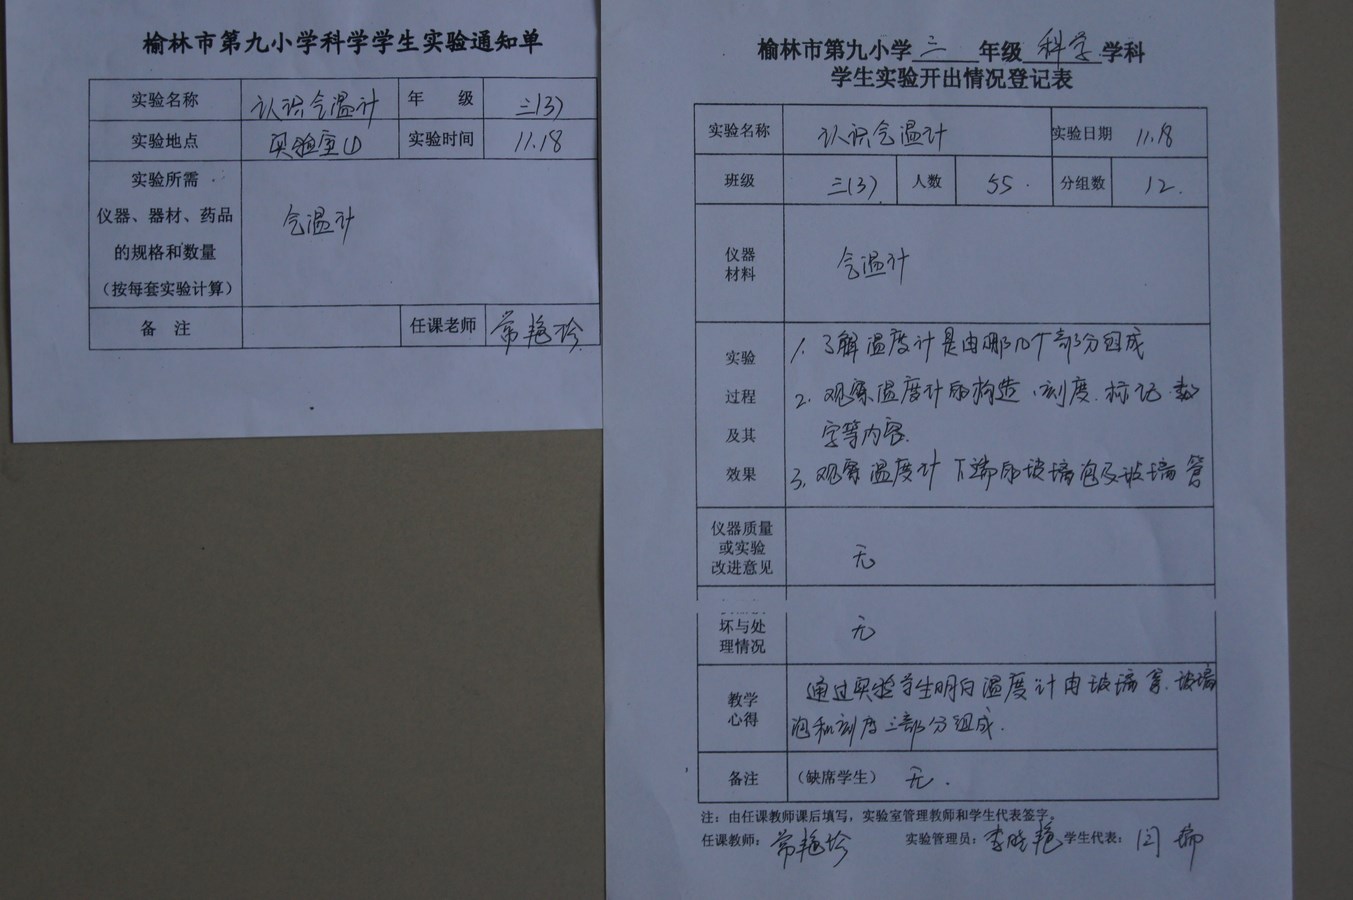 榆林市第九小学科学学生实验通知单
实验名称 认识气温计 年 级 三(3)
实验地点 实验室(1) 实验时间 11.18
实验所需
仪器、器材、药品
的规格和数量
（按每套实验计算）
气温计
备 注 任课老师 常艳珍
榆林市第九小学 三 年级 科学 学科
学生实验开出情况登记表
实验名称 认识气温计 实验日期 11.18
班级 三(3) 人数 55. 分组数 12.
仪器
材料
气温计
实验
过程
及其
效果
1. 了解温度计是由哪几个部分组成
2. 观察温度计的构造、刻度.标记.数
字等内容.
3. 观察温度计下端的玻璃泡及玻璃管
仪器质量
或实验
改进意见
无
坏与处
理情况
无
教学
心得
通过实验学生明白温度计由玻璃管.玻璃
泡和刻度三部分组成.
备注 （缺席学生） 无.
注：由任课教师课后填写，实验室管理教师和学生代表签字。
任课教师： 常艳珍 实验管理员： 李晓艳 学生代表： 闫